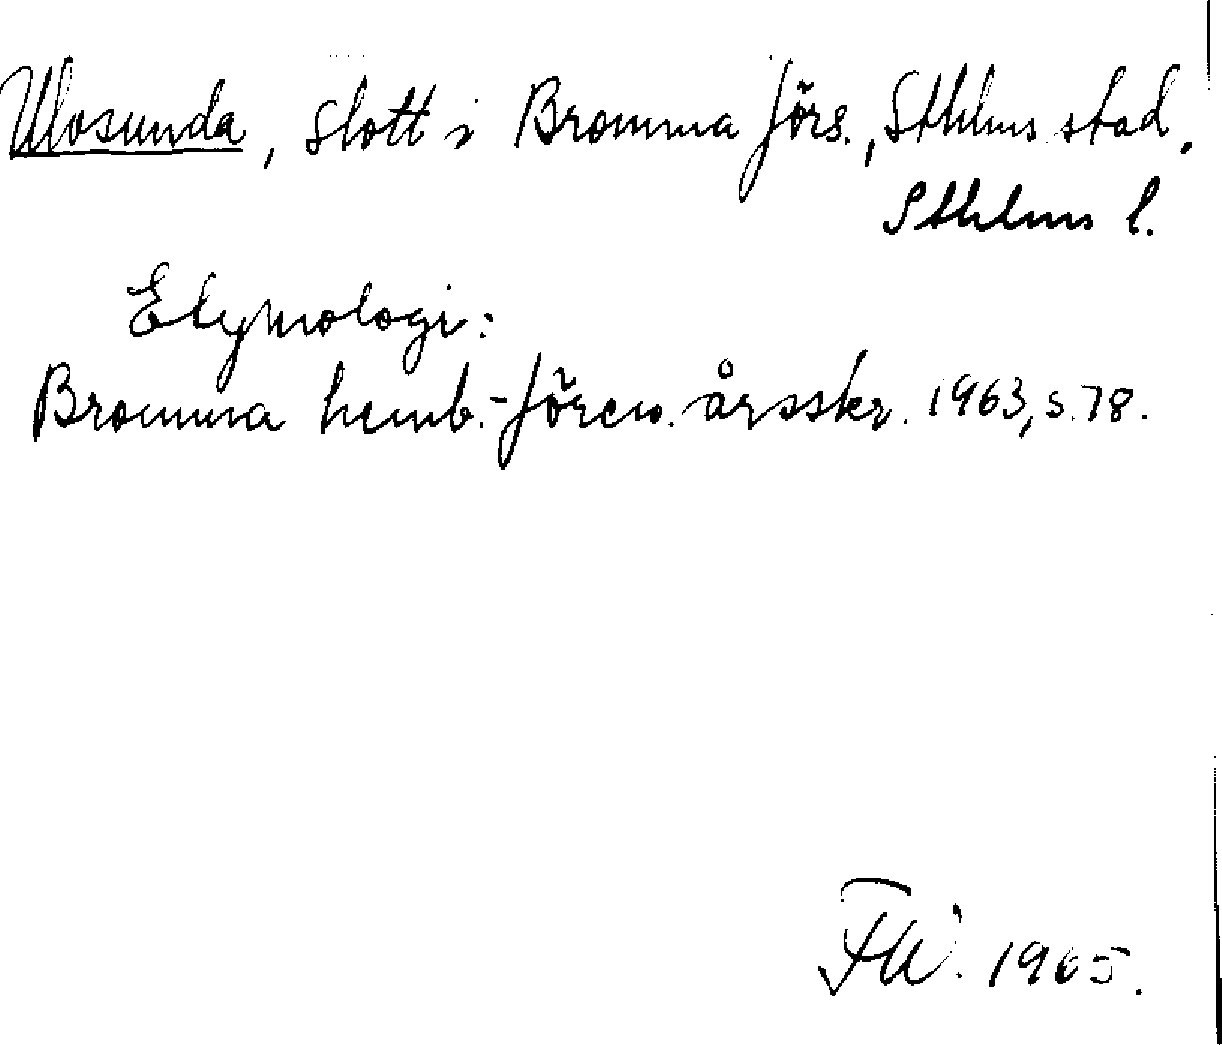 Ulvsunda, slott i Bromma förs., Sthlms stad.
Sthlms l.
Etymologi:
Bromma hemb.-fören. årsskr. 1963, s. 78.
1965.